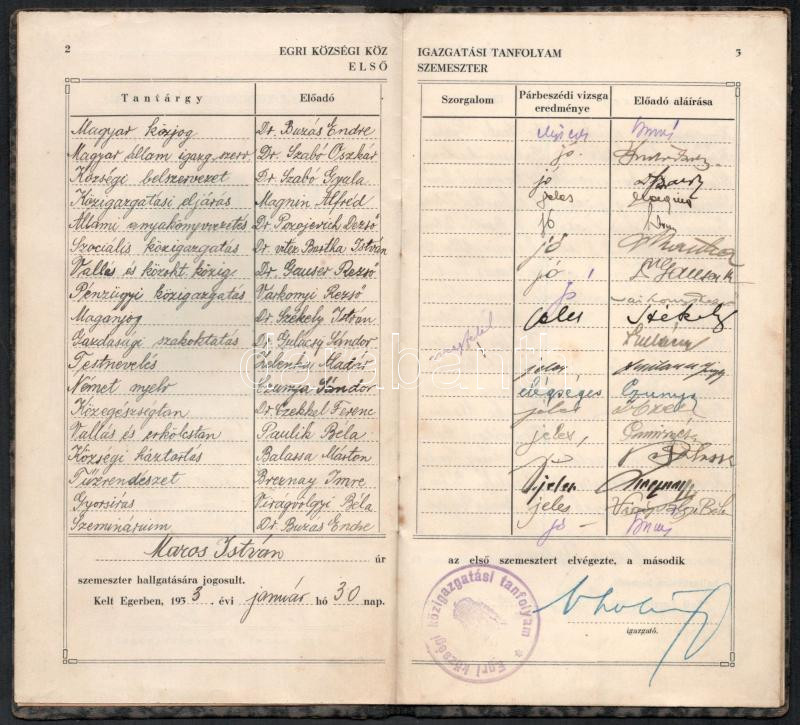 2
EGRI KÖZSÉGI KÖZ
ELSŐ
Tantárgy Előadó
Magyar közjog Dr. Buzás Endre
Magyar állam igazg. szerv. Dr. Szabó Oszkár
Községi belszervezet Dr. Szabó Gyula
Közigazgatási eljárás Magnin Alfréd
Állami anyakönyvvezetés Dr. Pozojevich Dezső
Szociális közigazgatás Dr. vitéz Bartha István
Vallás és közokt. közig. Dr. Gauser Rezső
Pénzügyi közigazgatás Várkonyi Rezső
Magánjog Dr. Székely István
Gazdasági szakoktatás Dr. Gulácsy Sándor
Testnevelés Zelenka
Német nyelv Czunya Sándor
Közegészségtan Dr. Czekkel Ferenc
Vallás és erkölcstan Paulik Béla
Községi háztartás Balassa Márton
Tűzrendészet Breznay Imre
Gyorsírás Virágvölgyi Béla
Szeminárium Dr. Buzás Endre
Maros István úr
szemeszter hallgatására jogosult.
Kelt Egerben, 1933. évi január hó 30 nap.
IGAZGATÁSI TANFOLYAM
SZEMESZTER
3
Szorgalom Párbeszédi vizsga eredménye Előadó aláírása
jó
jó
jeles
jó
jó
jó
jó
jeles Székely
megfelel
jeles
elégséges Czunya
jeles
jeles
jó
jeles
jeles Virágvölgyi Béla
jó
az első szemesztert elvégezte, a második
igazgató.
Egri községi közigazgatási tanfolyam
darabanth